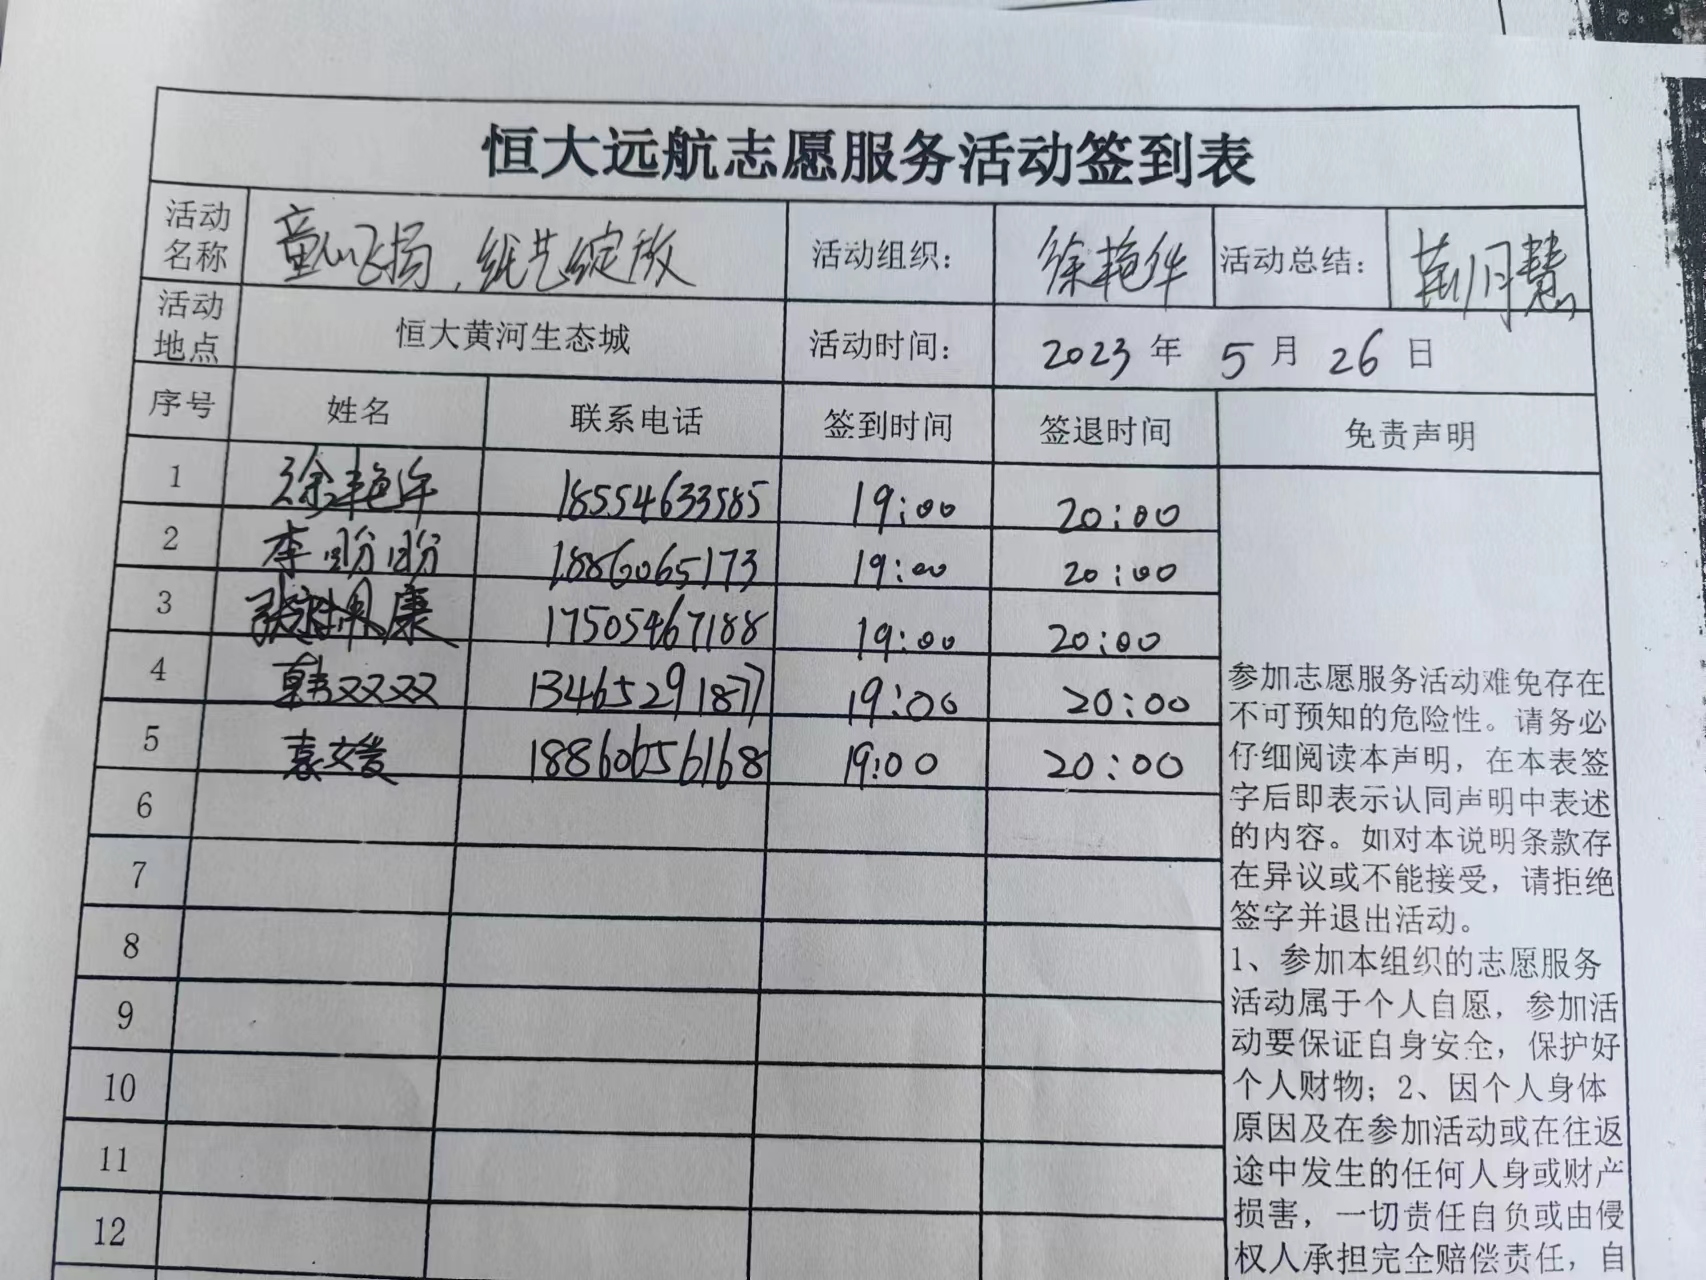 恒大远航志愿服务活动签到表
活动名称 童心飞扬，纸艺绽放 活动组织： 徐艳华 活动总结： 荆月慧
活动地点 恒大黄河生态城 活动时间： 2023 年 5 月 26 日
序号 姓名 联系电话 签到时间 签退时间 免责声明
1 徐艳华 18554633585 19:00 20:00
2 李盼盼 1886065173 19:00 20:00
3 康 17505467188 19:00 20:00
4 韩双双 13465291877 19:00 20:00
5 袁文爱 18860656168 19:00 20:00
6
7
8
9
10
11
12
参加志愿服务活动难免存在
不可预知的危险性。请务必
仔细阅读本声明，在本表签
字后即表示认同声明中表述
的内容。如对本说明条款存
在异议或不能接受，请拒绝
签字并退出活动。
1、参加本组织的志愿服务
活动属于个人自愿，参加活
动要保证自身安全，保护好
个人财物；2、因个人身体
原因及在参加活动或在往返
途中发生的任何人身或财产
损害，一切责任自负或由侵
权人承担完全赔偿责任，自